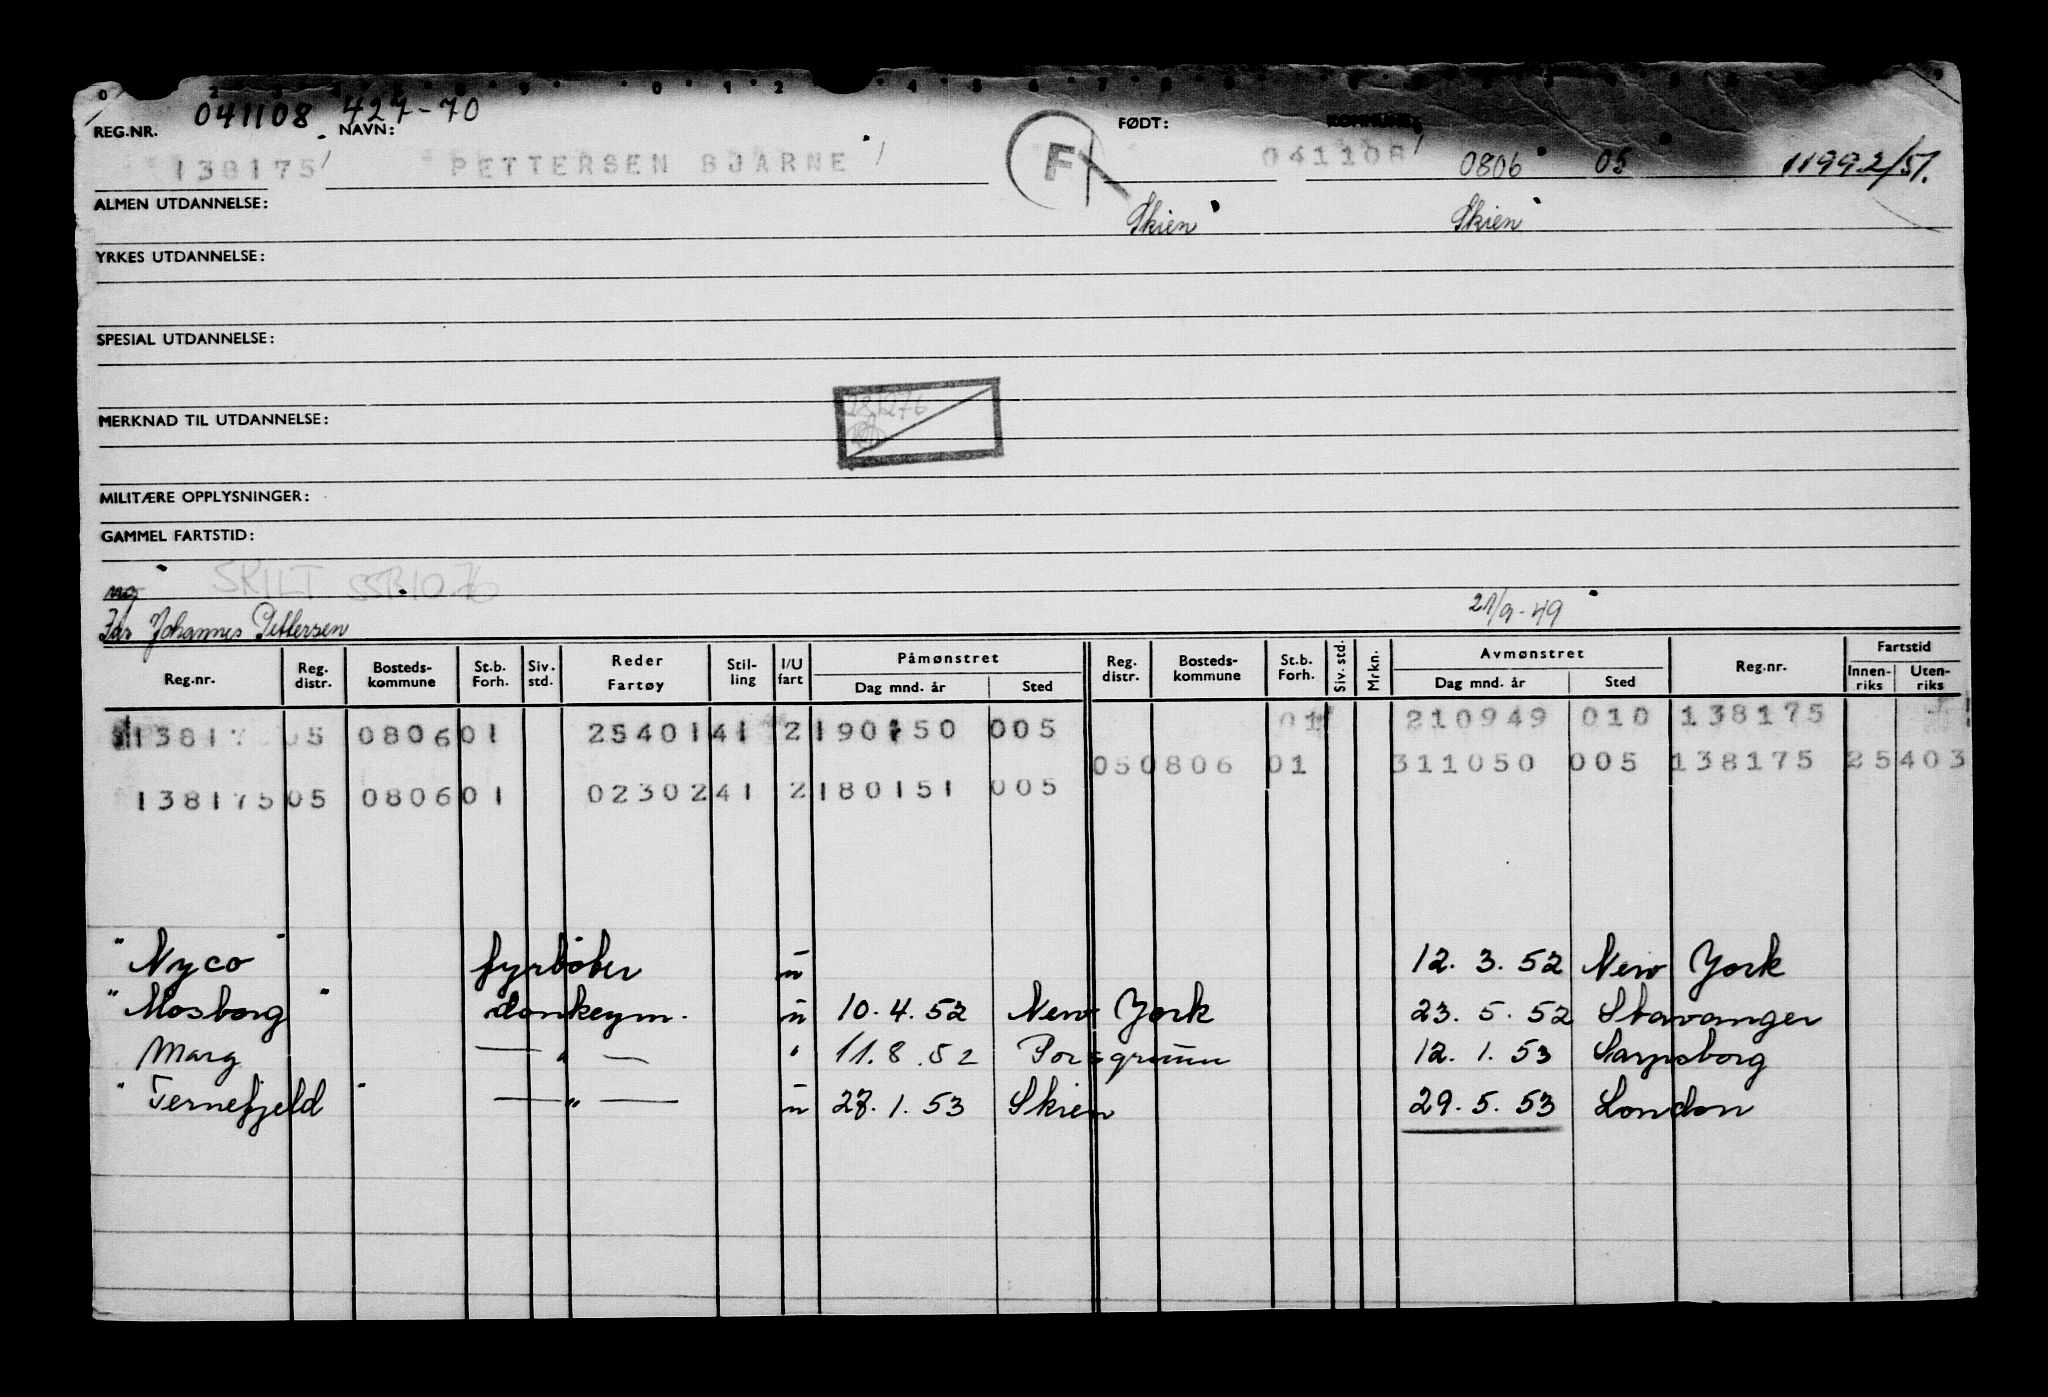 041108 427-70
REG.NR. NAVN: FØDT:
138175 PETTERSEN BJARNE F 041108 0806 05 11992/51.
ALMEN UTDANNELSE: Skien Skien
YRKES UTDANNELSE:
SPESIAL UTDANNELSE:
MERKNAD TIL UTDANNELSE:
MILITÆRE OPPLYSNINGER:
GAMMEL FARTSTID:
ug SKILT
Far Johannes Pettersen 21/9-49
Reg.nr. Reg. distr. Bosteds-kommune St.b. Forh. Siv. std. Reder Fartøy Stil-ling I/U fart Påmønstret Dag mnd. år Sted Reg. distr. Bosteds-kommune St.b. Forh. Siv. std. Mrkn. Avmønstret Dag mnd. år Sted Reg.nr. Fartstid Innen-riks Uten-riks
01 210949 010 138175
13817 05 0806 01 25401 41 2 190150 005
050806 01 311050 005 138175 25403
138175 05 0806 01 02302 41 2 180151 005
"Nyco" fyrbøter u 12. 3. 52 New York
"Mosborg" donkeym. u 10. 4. 52 New York 23. 5. 52 Stavanger
Marg — " — " 11. 8. 52 Porsgrunn 12. 1. 53 Sarpsborg
"Ternefjeld" — " — u 28. 1. 53 Skien 29. 5. 53 London